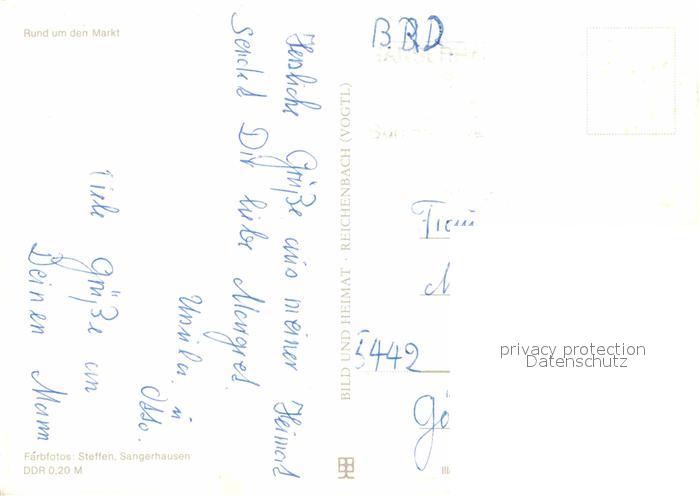 Rund um den Markt
Herzliche Grüße aus meiner Heimat
sendet Dir liebe Margret
Ursula u.
Osso.
Viele Grüße an
Deinen Mann
Farbfotos: Steffen, Sangerhausen
DDR 0,20 M
BILD UND HEIMAT · REICHENBACH (VOGTL)
BRD
Frau
M
5442
Gö
III
privacy protection
Datenschutz